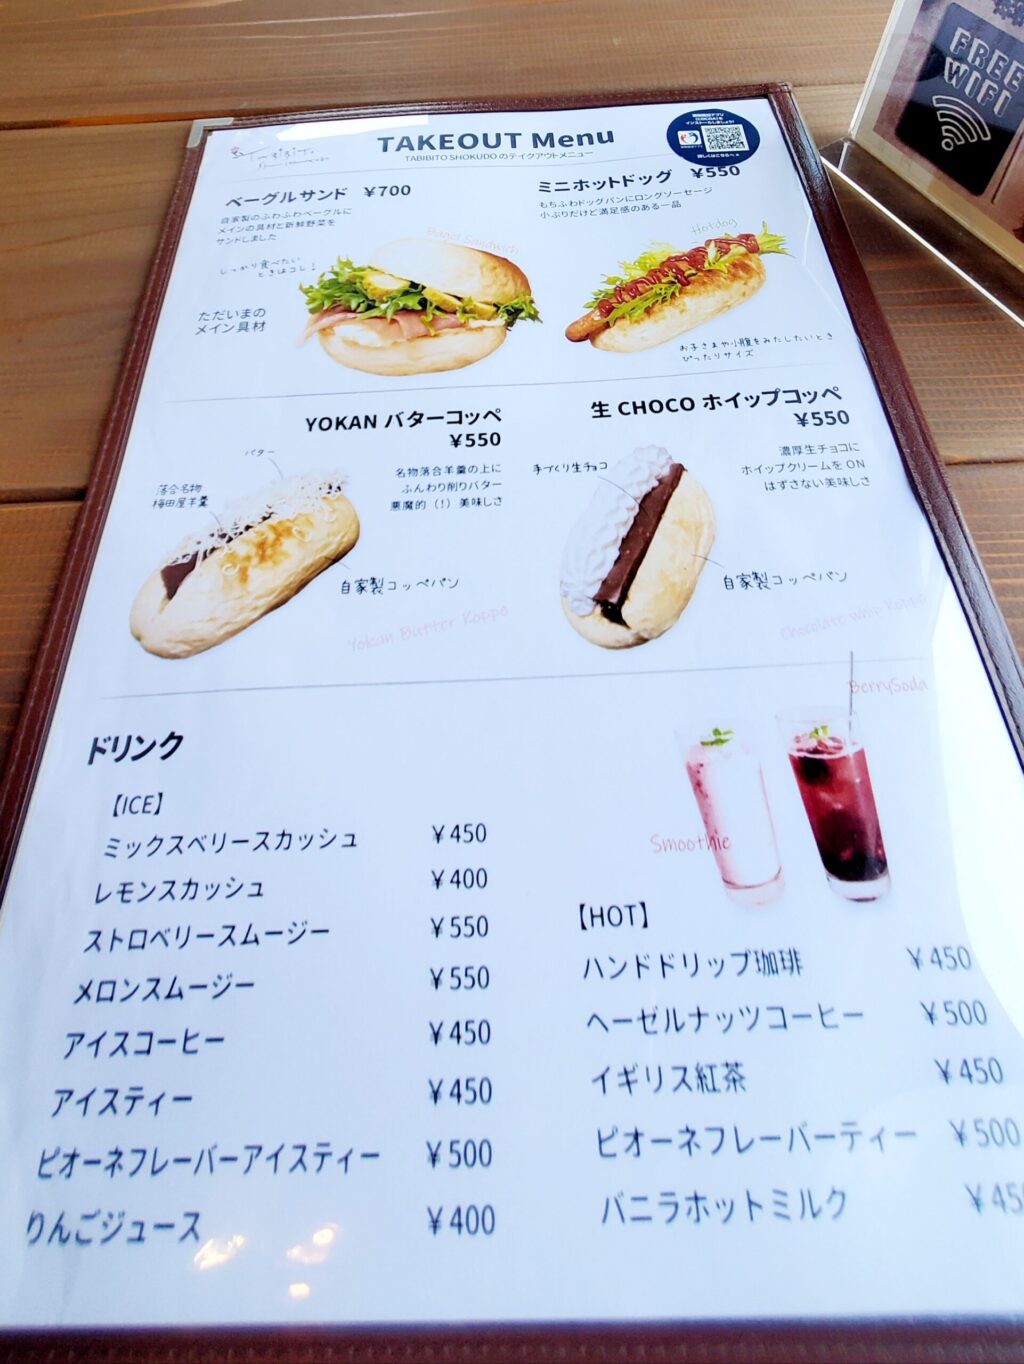 FREE
WIFI
TAKEOUT Menu
TABIBITO SHOKUDOのテイクアウトメニュー
ベーグルサンド ￥700
自家製のふわふわベーグルに
メインの具材と新鮮野菜を
サンドしました
しっかり食べたい
ときはコレ！
ただいまの
メイン具材
Bagel Sandwich
ミニホットドッグ ￥550
もちふわドッグパンにロングソーセージ
小ぶりだけど満足感のある一品
Hotdog
お子さまや小腹をみたしたいとき
ぴったりサイズ
YOKAN バターコッペ
￥550
名物落合羊羹の上に
ふんわり削りバター
悪魔的（！）美味しさ
バター
落合名物
梅田屋羊羹
自家製コッペパン
Yokan Butter Koppe
生 CHOCO ホイップコッペ
￥550
濃厚生チョコに
ホイップクリームを ON
はずさない美味しさ
手づくり生チョコ
自家製コッペパン
Chocolate Whip Koppe
ドリンク
【ICE】
ミックスベリースカッシュ ￥450
レモンスカッシュ ￥400
ストロベリースムージー ￥550
メロンスムージー ￥550
アイスコーヒー ￥450
アイスティー ￥450
ピオーネフレーバーアイスティー ￥500
りんごジュース ￥400
BerrySoda
Smoothie
【HOT】
ハンドドリップ珈琲 ￥450
ヘーゼルナッツコーヒー ￥500
イギリス紅茶 ￥450
ピオーネフレーバーティー ￥500
バニラホットミルク ￥45